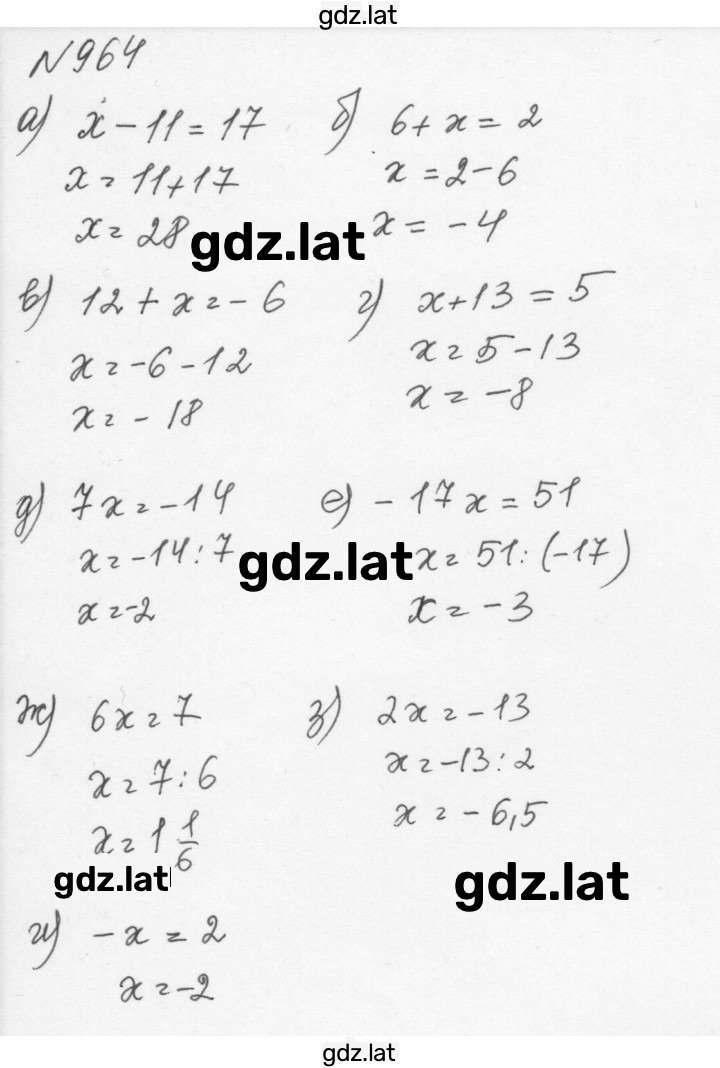 gdz.lat
N964
а) x - 11 = 17
x = 11 + 17
x = 28
б) 6 + x = 2
x = 2 - 6
x = -4
gdz.lat
в) 12 + x = -6
x = -6 - 12
x = -18
г) x + 13 = 5
x = 5 - 13
x = -8
д) 7x = -14
x = -14 : 7
x = -2
е) -17x = 51
x = 51 : (-17)
x = -3
gdz.lat
ж) 6x = 7
x = 7 : 6
x = 1 1/6
з) 2x = -13
x = -13 : 2
x = -6,5
gdz.lat
gdz.lat
и) -x = 2
x = -2
gdz.lat